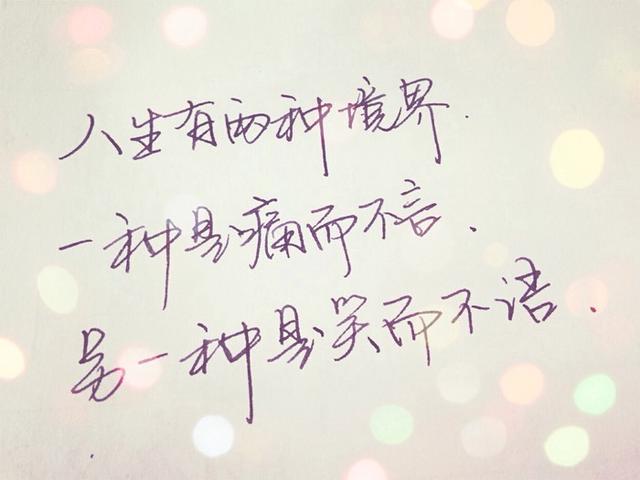 人生有两种境界.
一种是痛而不言.
另一种是笑而不语.